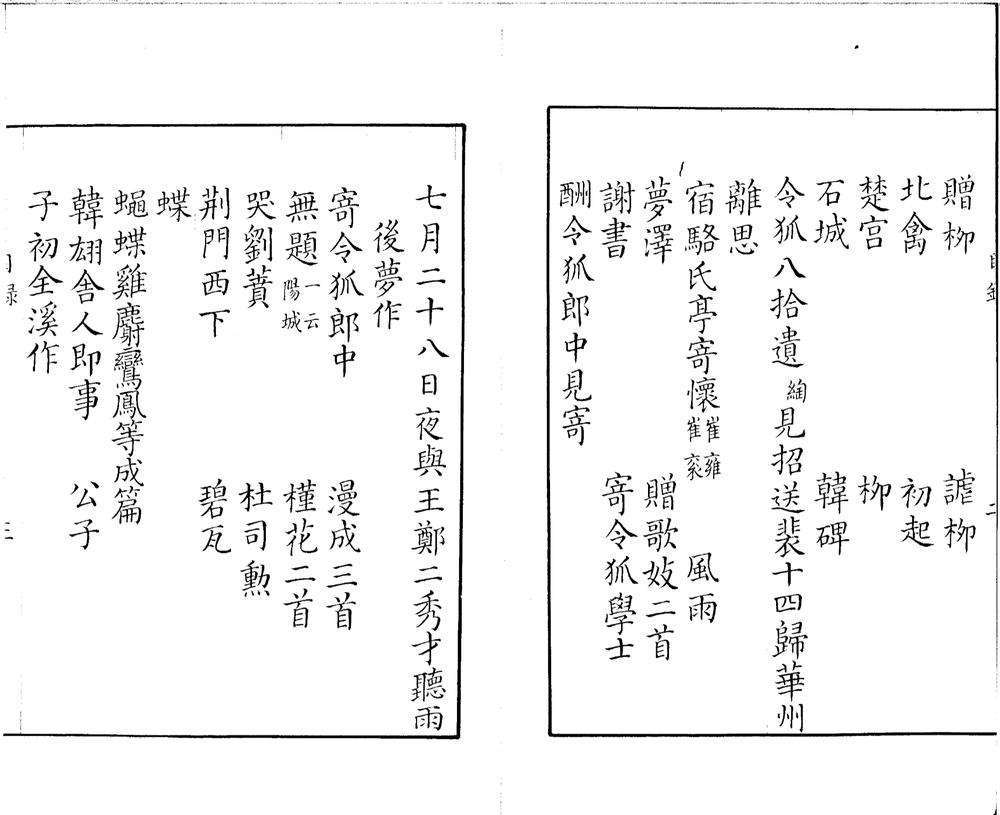 目錄
二
贈柳　謔柳
北禽　初起
楚宮　柳
石城　韓碑
令狐八拾遺綯見招送裴十四歸華州
離思
宿駱氏亭寄懷崔雍崔袞　風雨
夢澤　贈歌妓二首
謝書　寄令狐學士
酬令狐郎中見寄
七月二十八日夜與王鄭二秀才聽雨
後夢作
寄令狐郎中　漫成三首
無題一云陽城　槿花二首
哭劉蕡　杜司勳
荆門西下　碧瓦
蝶
蠅蝶雞麝鸞鳳等成篇
韓翃舍人即事　公子
子初全溪作
目録
三